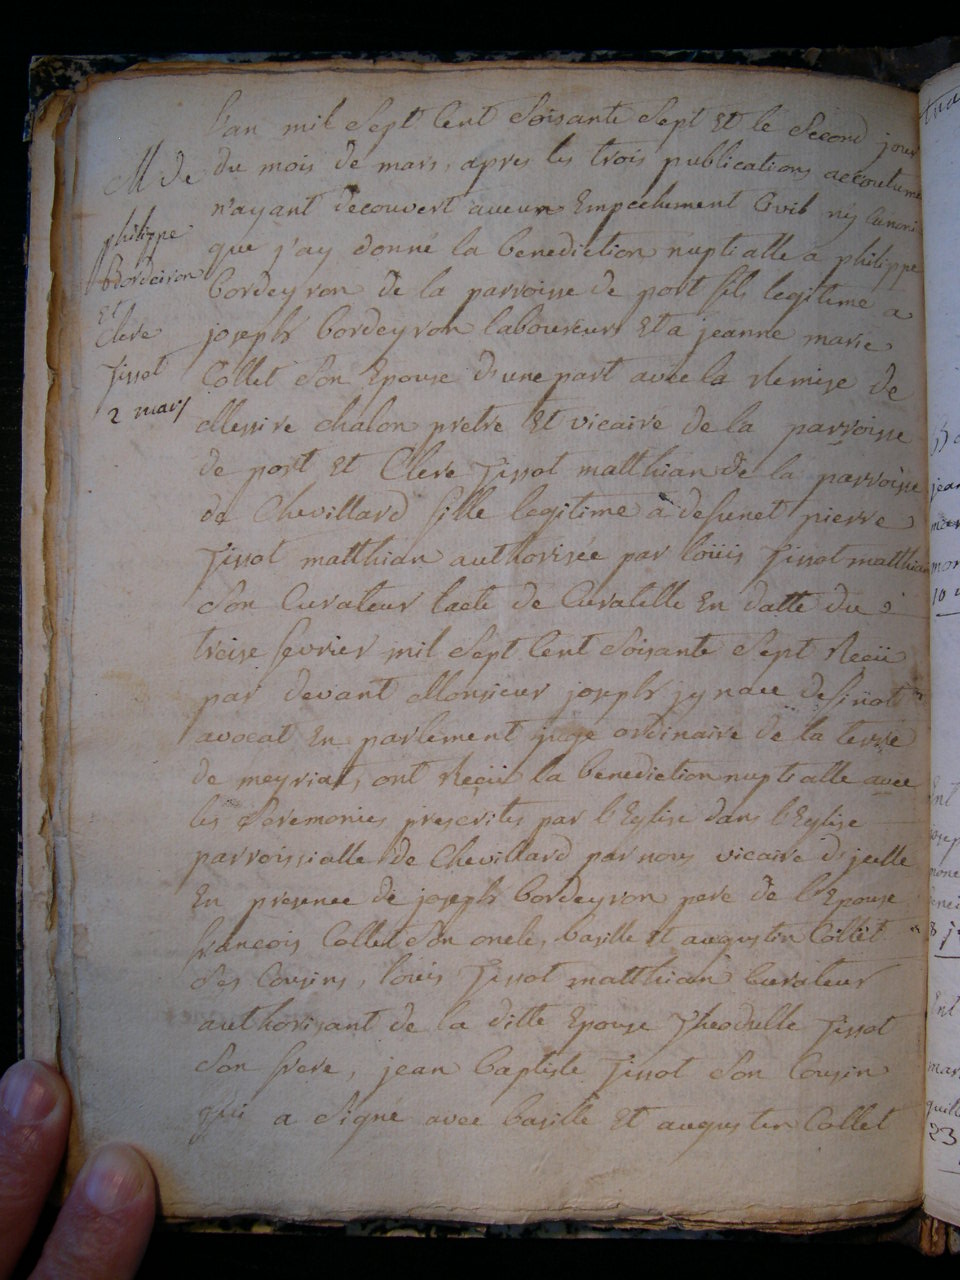 L'an mil Sept Cent Soisante Sept Et le Second jour
M de
du mois de mars, apres les trois publications accoutume
n'ayant decouvert aucun Empechement Civil ny Canoni
philippe
Bordeiron
Et
Clere
Tissot
2 mars
que j'ay donné la benediction nuptialle a philippe
bordeyron de la parroisse de port fils legitime a
joseph bordeyron laboureur Et a jeanne marie
Collet Son Epouse d'une part avec la Remise de
Messire chalon pretre Et vicaire de la parroisse
de port Et Clere Tissot matthian de la parroisse
de Chevillard fille legitime a defunct pierre
Tissot matthian authorisée par loüis Tissot matthian
Son Curateur l'acte de Curatelle En datte du
treise fevrier mil Sept Cent Soisante Sept Reçü
par devant Monsieur joseph
avocat En parlement juge ordinaire de la terre
de meyriat, ont Reçü la benediction nuptialle avec
les Ceremonies prescrites par l'Eglise dans l'Eglise
parroissialle de Chevillard par nous vicaire d'jcelle
En presence de joseph bordeyron pere de l'Epouse
francois Collet Son oncle, basille Et augustin Collet
Ses Cousins, loüis Tissot matthian Curateur
authorisant de la ditte Epouse Theodulle Tissot
Son frere, jean baptiste Tissot Son Cousin
qui a Signé avec basille Et augustin Collet